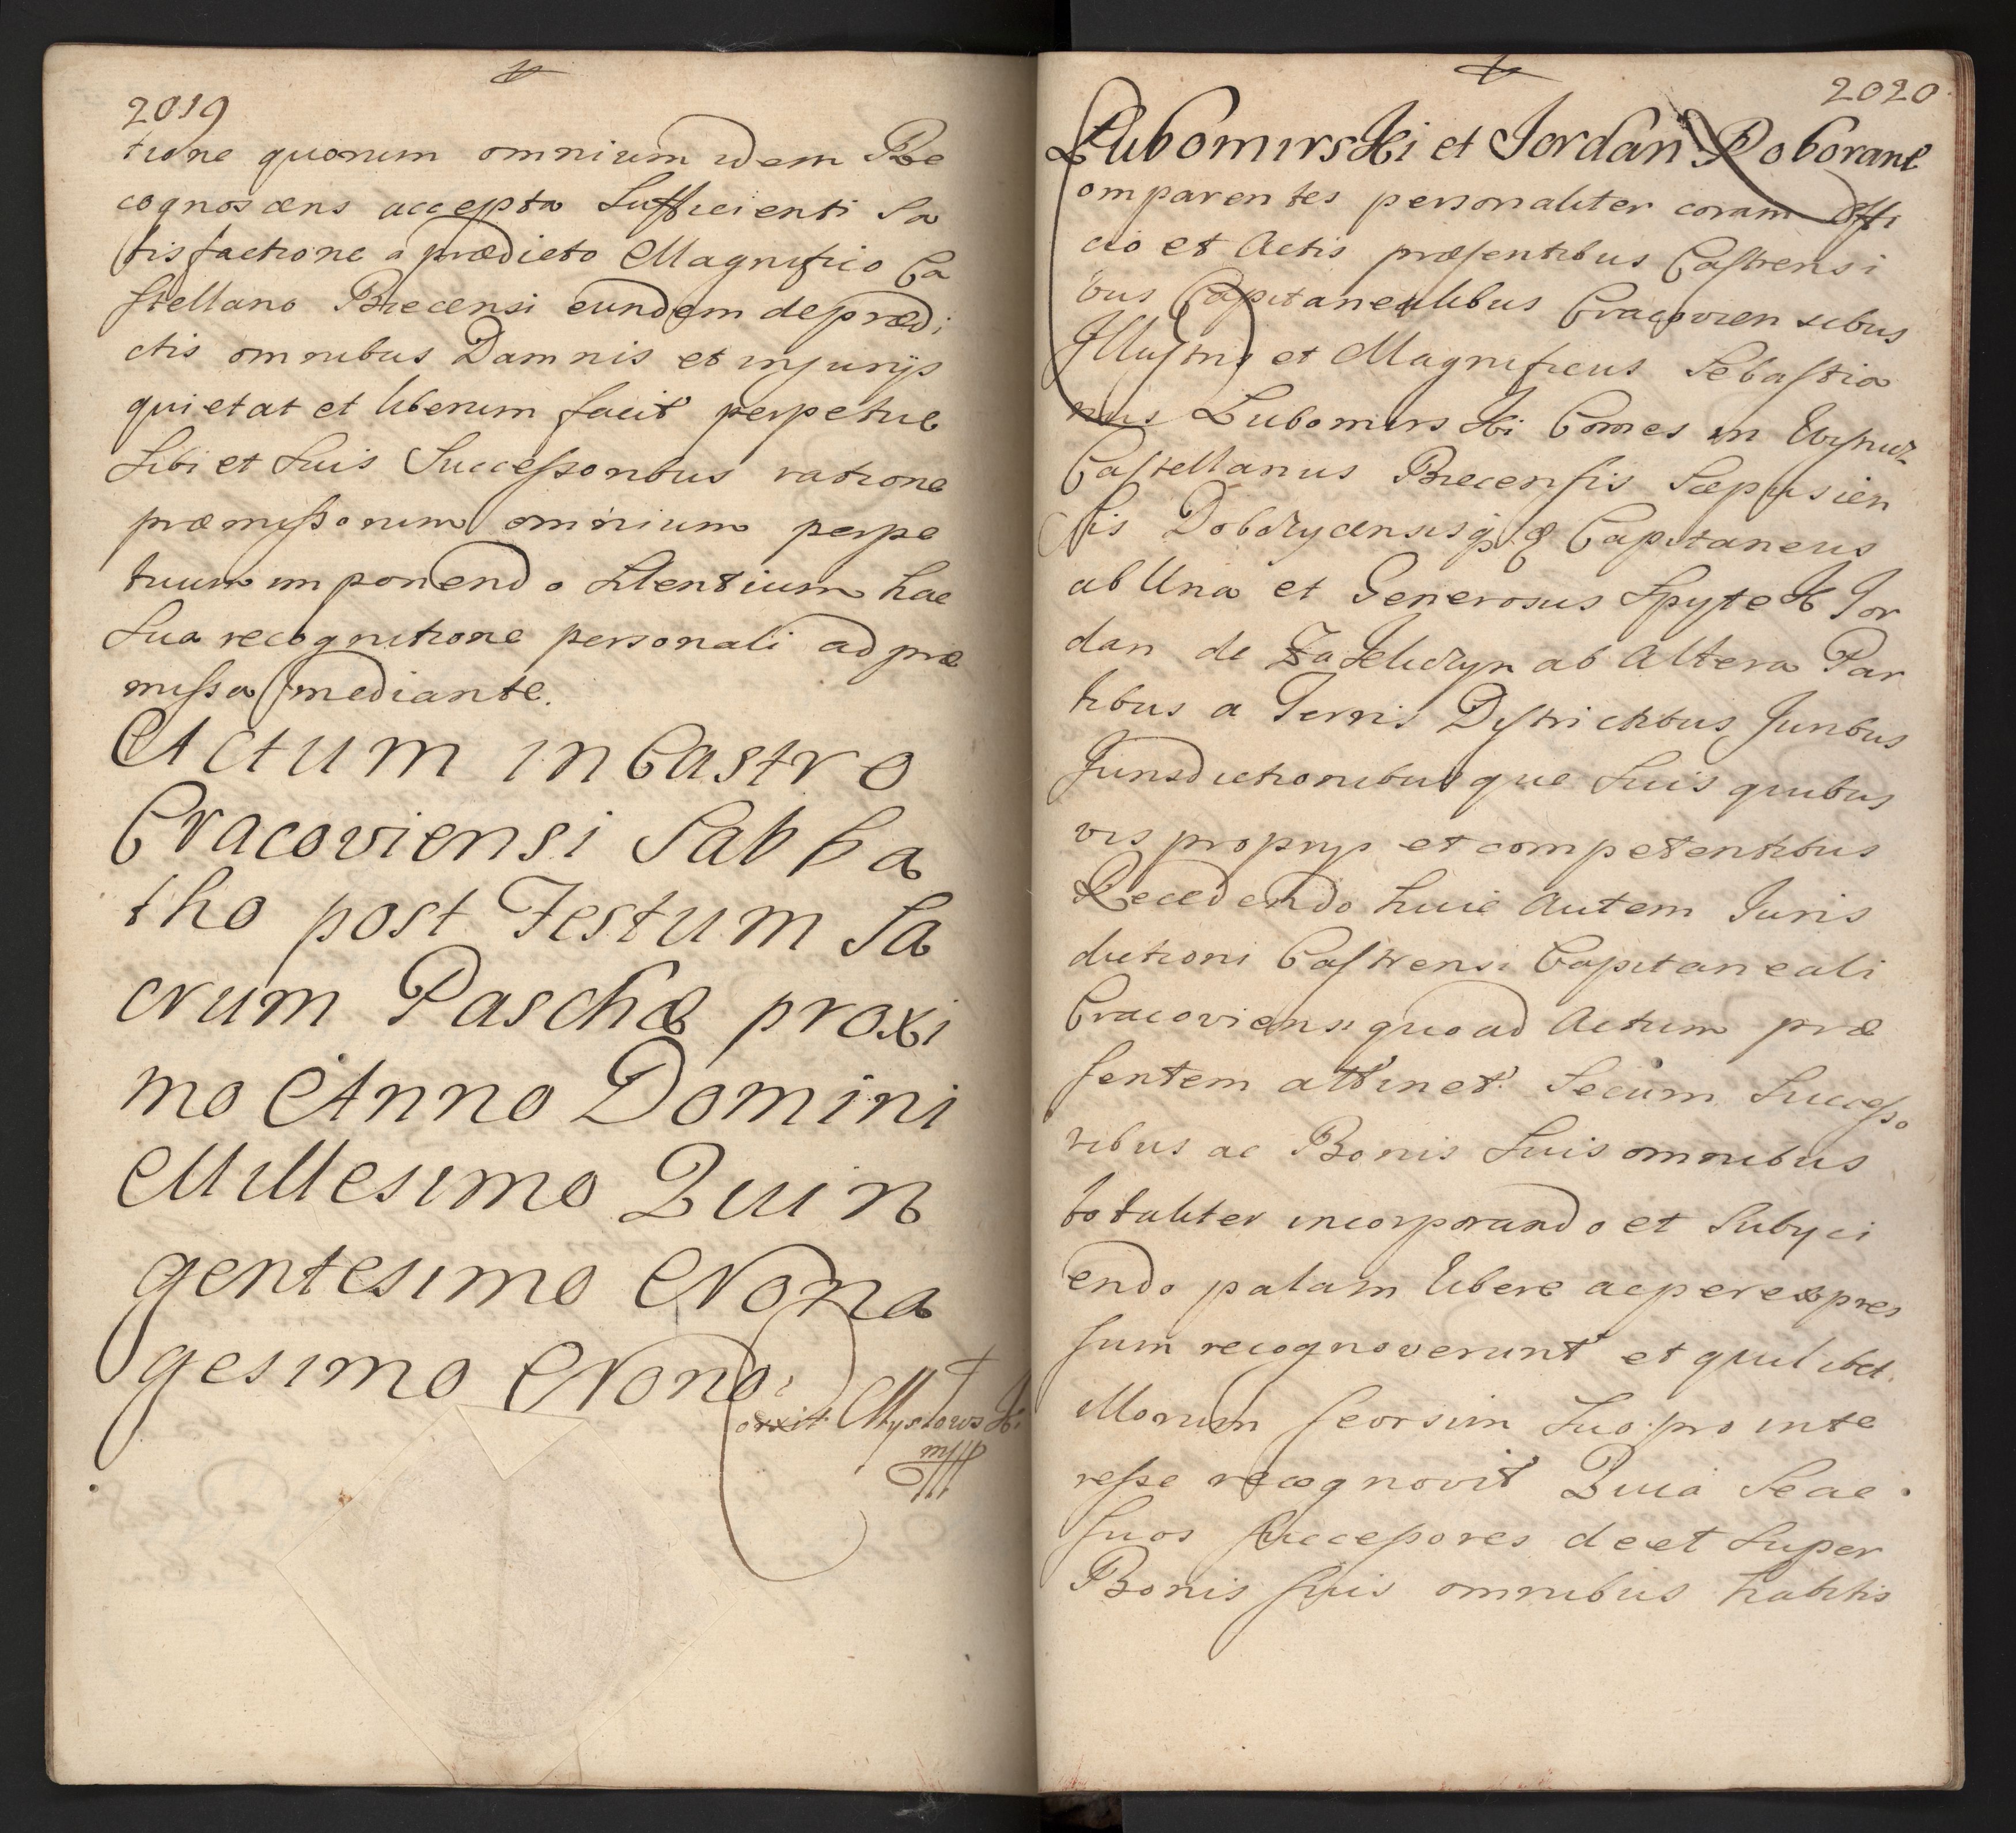 2019
tione quorum omnium idem Re
cognoscens accepta Sufficienti Sa
tisfactione a prædicto Magnifico Ca
stellano Biecensi eundem de præd:
ctis omnibus Damnis et injurijs
quietat et liberum facit perpetue
Sibi et Suis Successoribus ratione
præmissorum omnium perpe
tuum imponendo Silentium hac
Sua recognitione personali ad præ
missa mediante.
Actum in Castro
Cracoviensi Sabba
tho post Festum Sa
crum Paschæ proxi
mo Anno Domini
Millesimo Quin
gentesimo Nona
gesimo Nono.
Mysłowski
mpp
2020
Lubomirski et Jordan Roborant
omparentes personaliter coram Offi
cio et Actis præsentibus Castrensi
bus Capitanealibus Cracoviensibus
Illustris et Magnificus Sebastia
nus Lubomirski Comes in Wisnicz
Castellanus Biecensis Scepusien
sis Dobczycensisq Capitaneus
ab Una et Generosus Spytek Jor
dan de Zakliczyn ab Altera Par
tibus a Terris Districtibus Juribus
Jurisdictionibusque Suis quibus
vis proprijs et competentibus
Recedendo huic Autem Juris
dictioni Castrensi Capitaneali
Cracoviensi quoad Actum præ
sentem attinet Secum Successo
ribus ac Bonis Suis omnibus
totaliter incorporando et Subyci
endo palam libere ac per expres
sum recognoverunt et quilibet
illorum seorsim Suo pro inte
resse recognovit Quia Se ac
suos successores de et Super
Bonis suis omnibus habitis